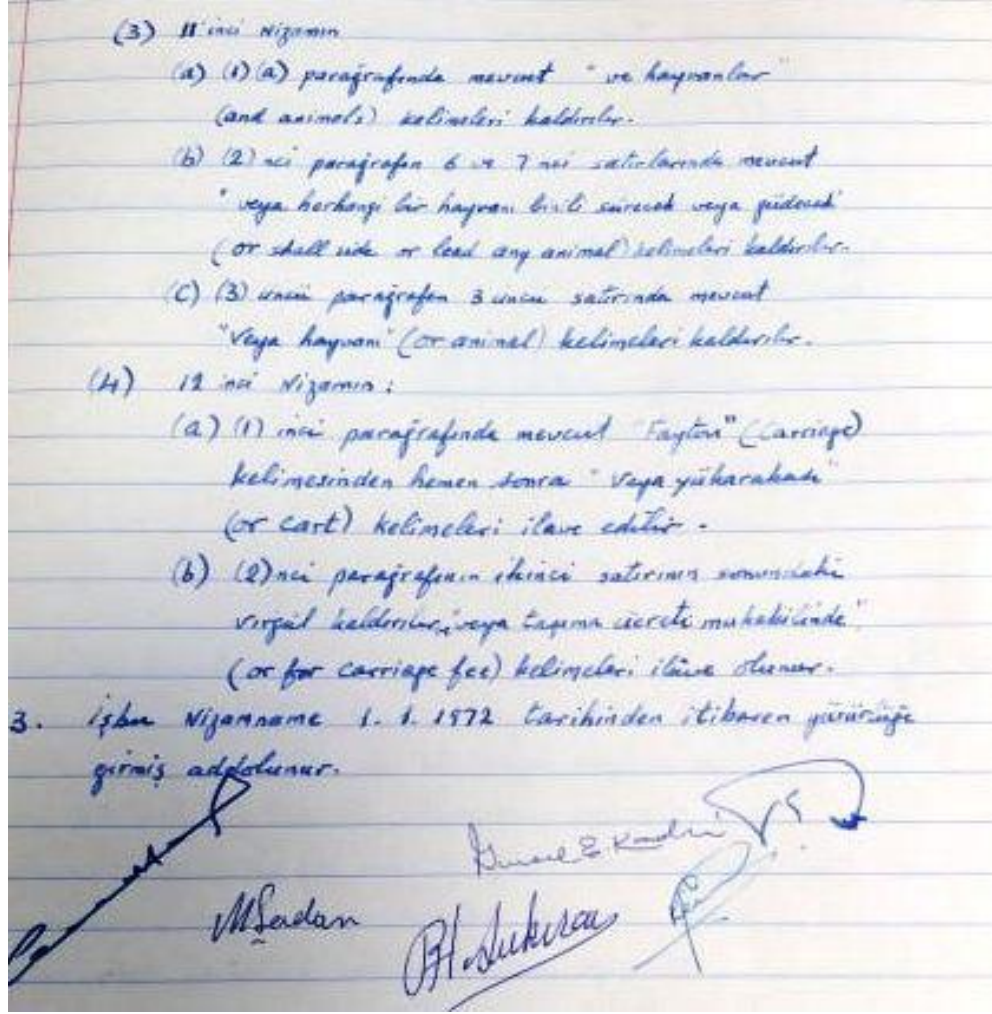 (3) 11'inci Nizamın
(a) (1) (a) paragrafında mevcut "ve hayvanlar"
(and animals) kelimeleri kaldırılır.
(b) (2) nci paragrafın 6 ve 7 nci satırlarında mevcut
"veya herhangi bir hayvanı binili sürecek veya güdecek"
(or shall ride or lead any animal) kelimeleri kaldırılır.
(C) (3) üncü paragrafın 3 üncü satırında mevcut
"veya hayvanı" (or animal) kelimeleri kaldırılır.
(4) 12 inci Nizamın :
(a) (1) inci paragrafında mevcut "Fayton" (Carriage)
kelimesinden hemen sonra "veya yük arabası"
(or cart) kelimeleri ilave edilir.
(b) (2) nci paragrafının ikinci satırının sonundaki
virgül kaldırılır, "veya taşıma ücreti mukabilinde"
(or for carriage fee) kelimeleri ilâve olunur.
3. İşbu Nizamname 1.1.1972 tarihinden itibaren yürürlüğe
girmiş addolunur.
M Şadan